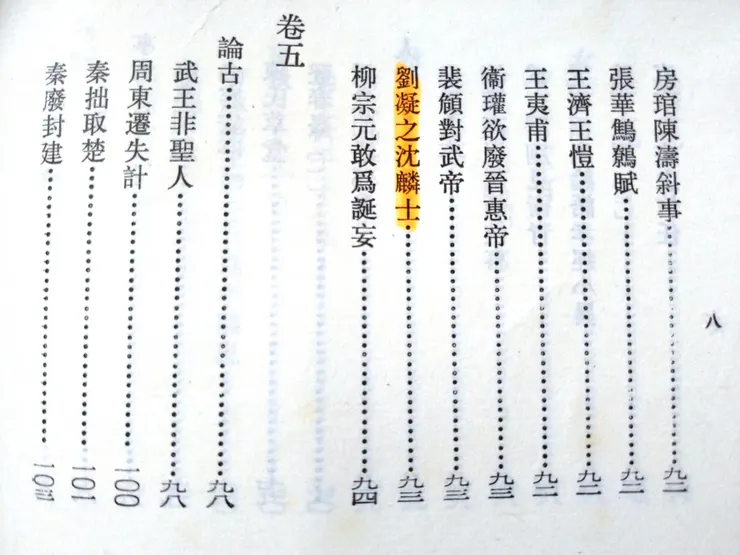 八
房琯陳濤斜事……九一
張華鷦鷯賦……九二
王濟王愷……九二
王夷甫……九二
衞瓘欲廢晉惠帝……九三
裴頠對武帝……九三
劉凝之沈麟士……九三
柳宗元敢爲誕妄……九四
卷五
論古……九八
武王非聖人……九八
周東遷失計……一〇〇
秦拙取楚……一〇一
秦廢封建……一〇三